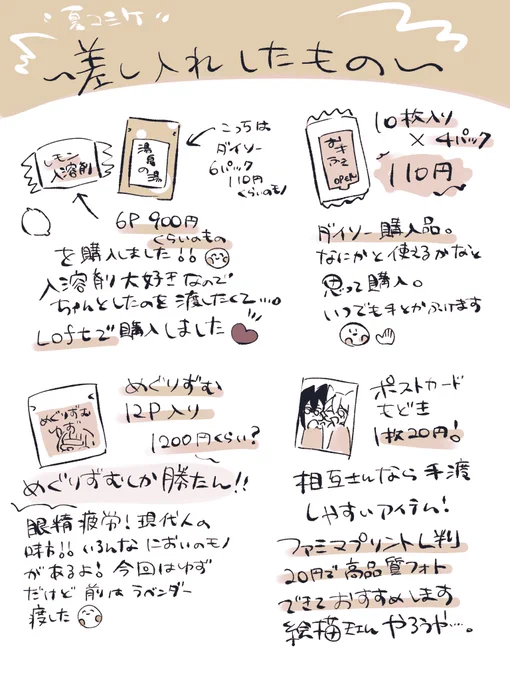 夏コミケ
〜差し入れしたもの〜
レモン
入溶剤
湯
の
湯
こっちは
ダイソー
6パック
110円
くらいのモノ
6P 900円
くらいのもの
を購入しました!!
入溶剤大好きなので
ちゃんとしたのを渡したくて…。
Loftで購入しました
10枚入り
×4パック
110円
OPEN
ダイソー購入品。
なにかと使えるかなと
思って購入。
いつでも手とかふけます
めぐりずむ
ゆず
めぐりずむ
12P入り
1200円くらい?
めぐりずむしか勝たん!!
眼精疲労!現代人の
味方!!いろんなにおいのモノ
があるよ!今回はゆず
だけど前はラベンダー
渡した
ポストカード
もどき
1枚20円!
相互さんなら手渡
しやすいアイテム!
ファミマプリントL判
20円で高品質フォト
できておすすめします
絵描きさんやろうや…。